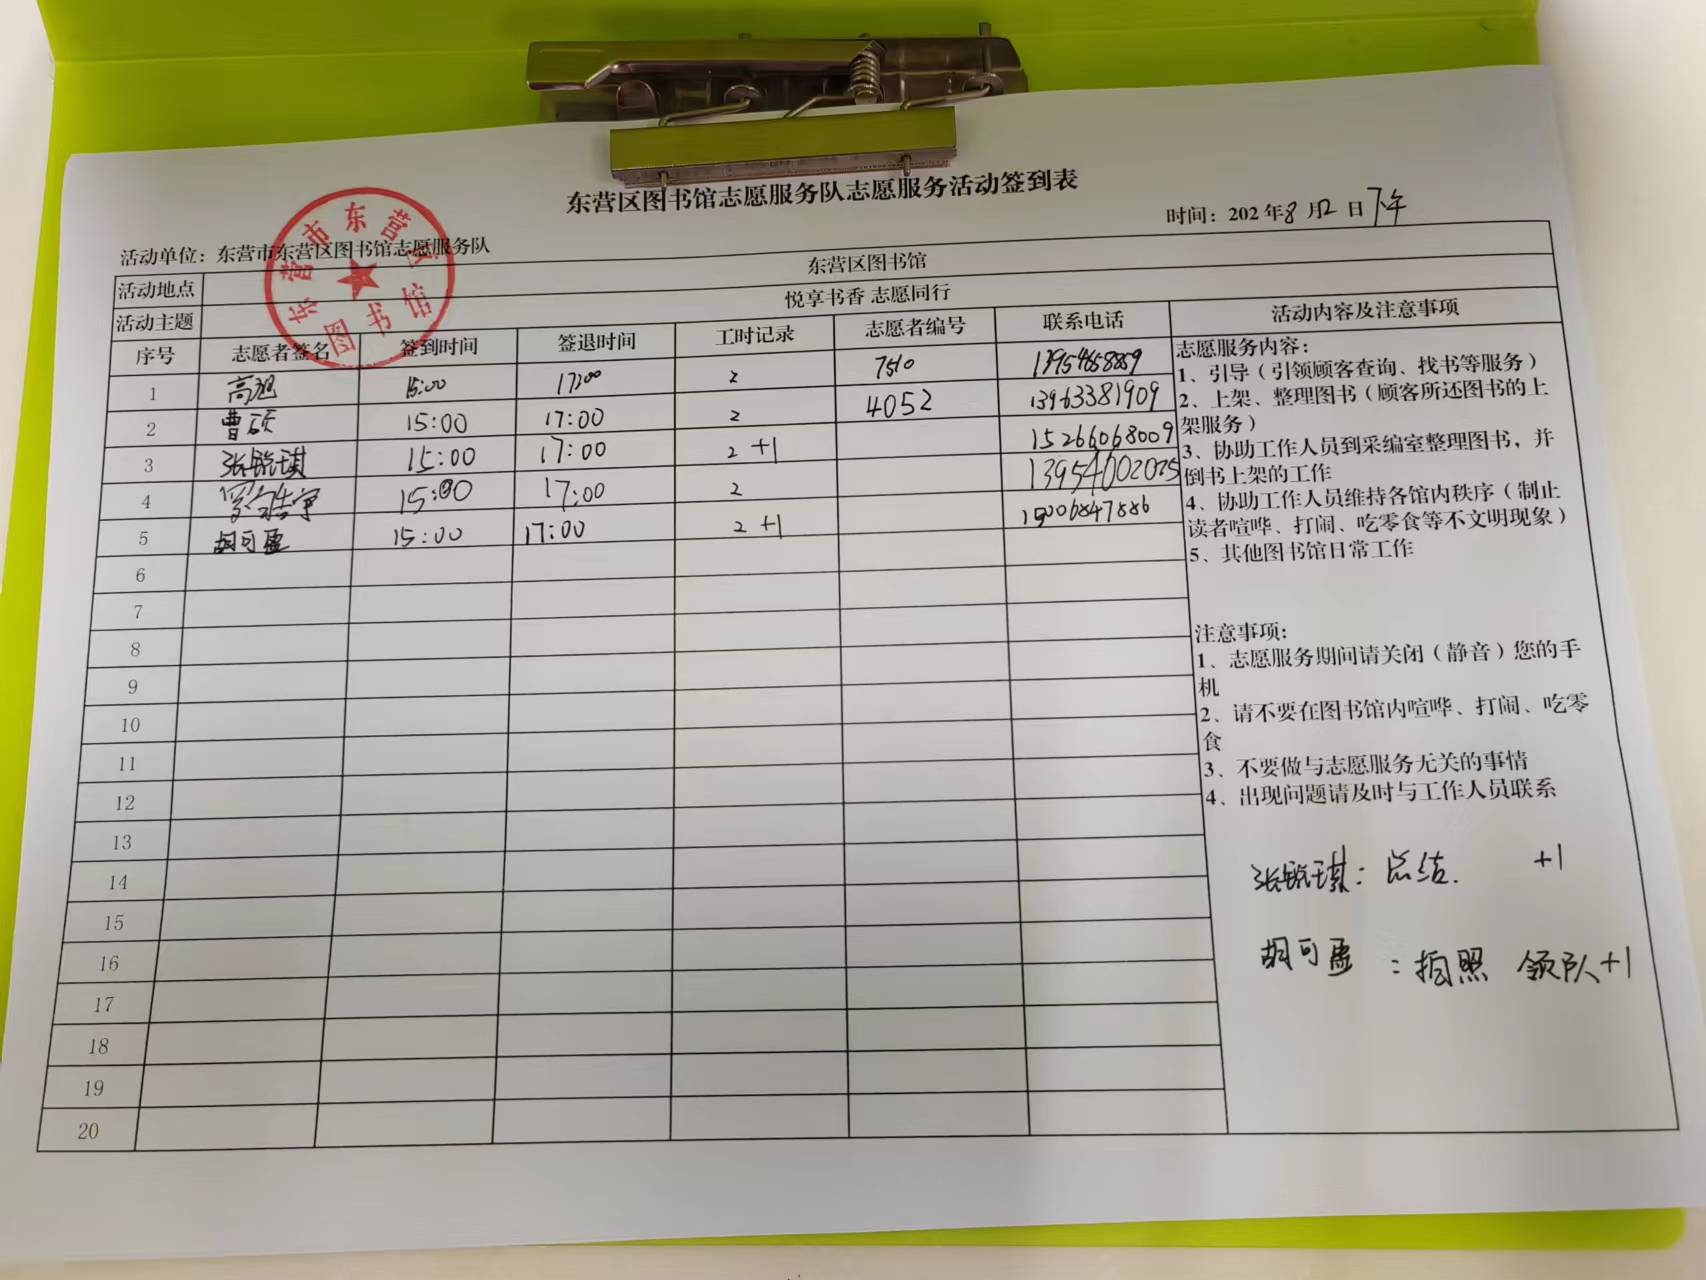 东营区图书馆志愿服务队志愿服务活动签到表
时间：202 年8月2日下午
活动单位：东营市东营区图书馆志愿服务队
东营市东营区
图书馆
活动地点 东营区图书馆
活动主题 悦享书香 志愿同行
序号 志愿者签名 签到时间 签退时间 工时记录 志愿者编号 联系电话 活动内容及注意事项
1 高旭 15:00 17:00 2 7510
2 曹硕 15:00 17:00 2 4052 13963381909
3 张锐琪 15:00 17:00 2+1 15266068009
4 15:00 17:00 2 13954002025
5 胡可盈 15:00 17:00 2+1 15006847886
6
7
8
9
10
11
12
13
14
15
16
17
18
19
20
志愿服务内容：
1、引导（引领顾客查询、找书等服务）
2、上架、整理图书（顾客所还图书的上
架服务）
3、协助工作人员到采编室整理图书，并
倒书上架的工作
4、协助工作人员维持各馆内秩序（制止
读者喧哗、打闹、吃零食等不文明现象）
5、其他图书馆日常工作
注意事项：
1、志愿服务期间请关闭（静音）您的手
机
2、请不要在图书馆内喧哗、打闹、吃零
食
3、不要做与志愿服务无关的事情
4、出现问题请及时与工作人员联系
张锐琪：总结. +1
胡可盈：拍照 领队+1